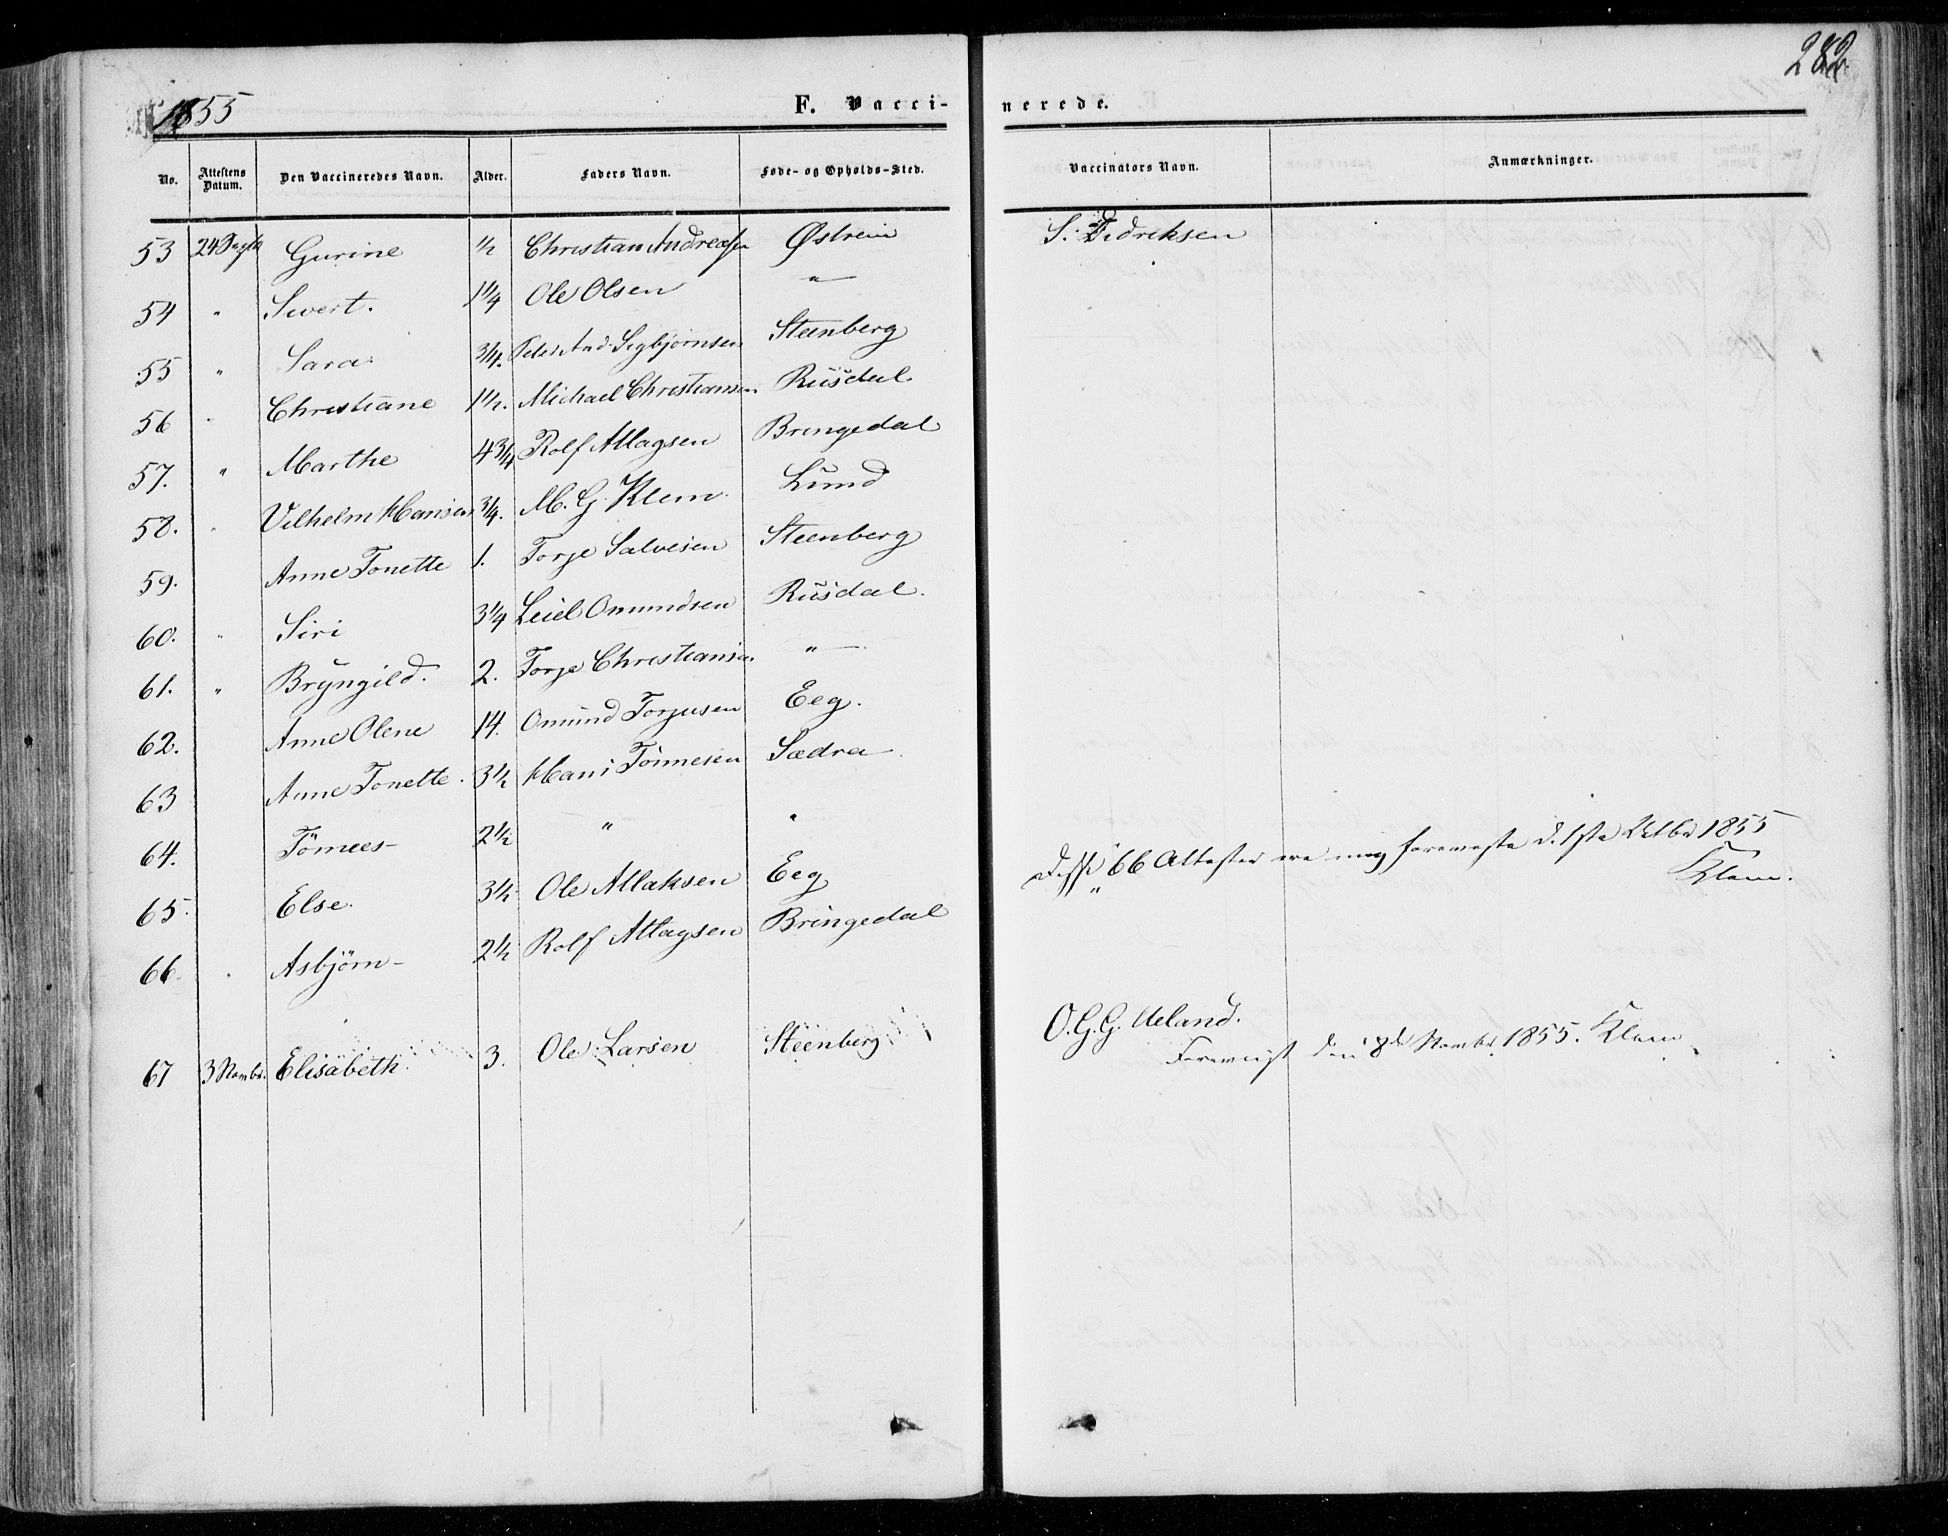 1855 F. Vacci- nerede. 282
No. Attestens Datum. Den Vaccineredes Navn. Alder. Faders Navn. Føde- og Opholds-Sted. Vaccinators Navn. Anmærkninger.
53 24 Gurine ½ Christian Andreasen Østrein S. Fedreksen
54 " Sivert. 1¼ Ole Olsen "
55 " Sara ¾. Peder And. Sigbjørnsen Steenberg
56 " Christiane 1½. Michael Christiansen Rüsdal
57. " Marthe 4¾ Rolf Atlagsen Bringedal
58. " Vilhelm Hansen ¾. M. G. Klem Lund
59. Anne Tonette 1. Torje Salvesen Steenberg
60. " Siri 3¼ Leiel Omundsen Rüsdal.
61. " Bryngild. 2. Torje Christians. "
62. Anne Olene 14. Omund Torjusen Eeg.
63 Anne Tonette. 3½ Hans Tönnesen Sædra
64. Tönnes 2½ " "
65. Else. 3½ Ole Atlaksen Eeg
66. " Asbjörn 2½ Rolf Atlagsen Bringedal
Disse 66 Attester ere mig foreviiste d. 1ste 1855
Klem.
67 3 Novembr. Elisabeth. 3. Ole Larsen Steenberg O. G. G. Ueland.
Foreviist den 8de Novembr. 1855. Klem